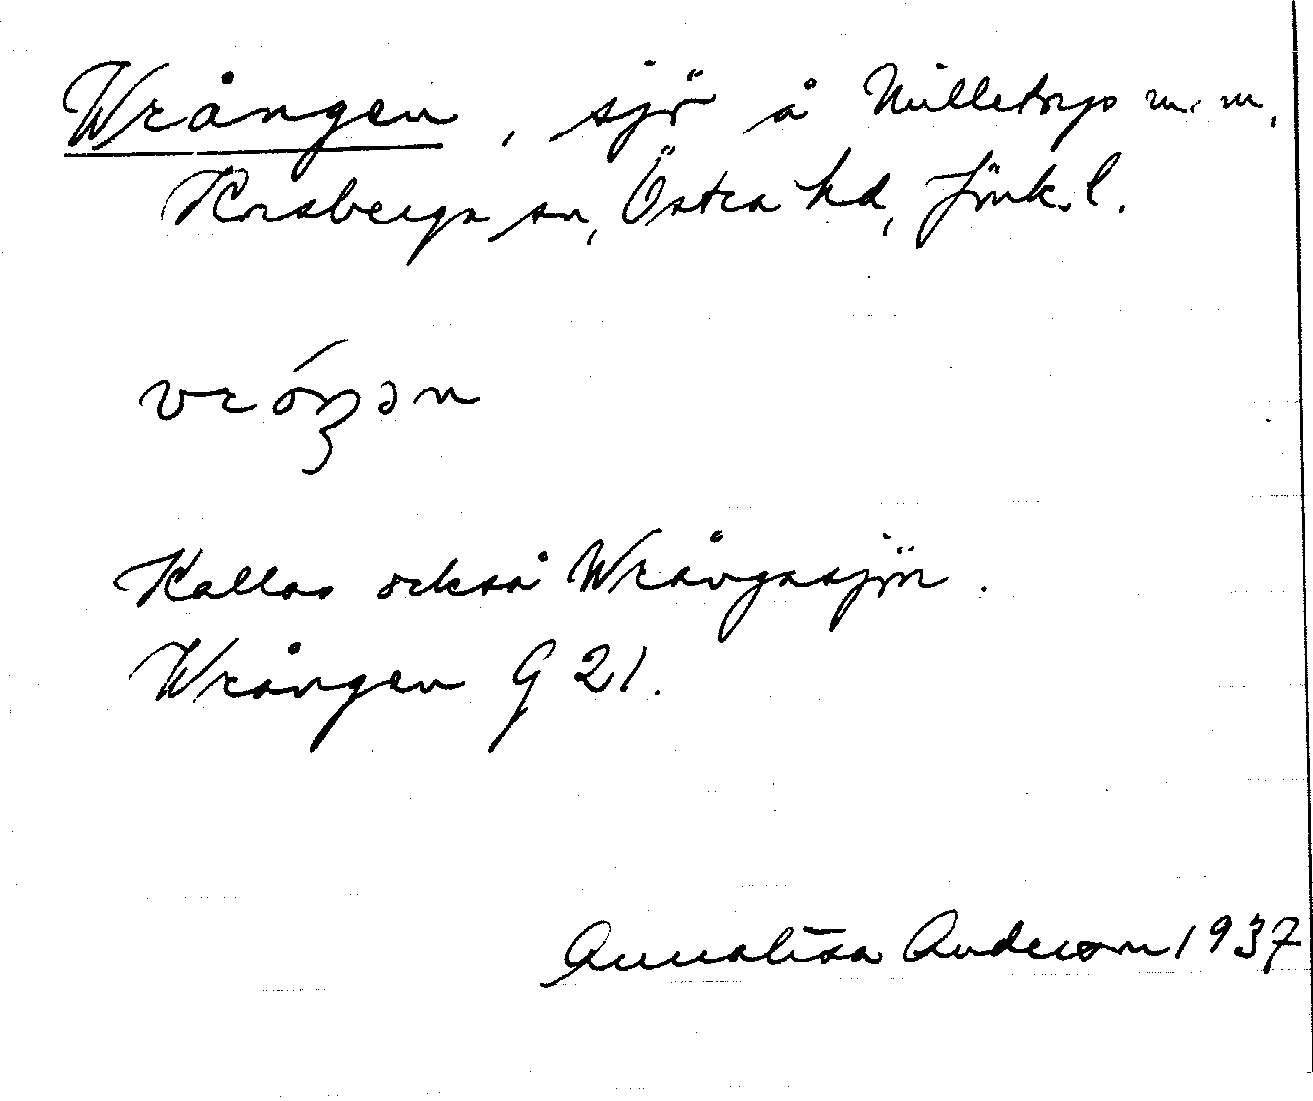 Wrången, sjö å Nülletorps m. m,
Korsberga sn, Östra hd, Jönk. l.
vróŋən
Kallas också Wrångasjön.
Wrången G 21.
Annalisa Anderson 1937